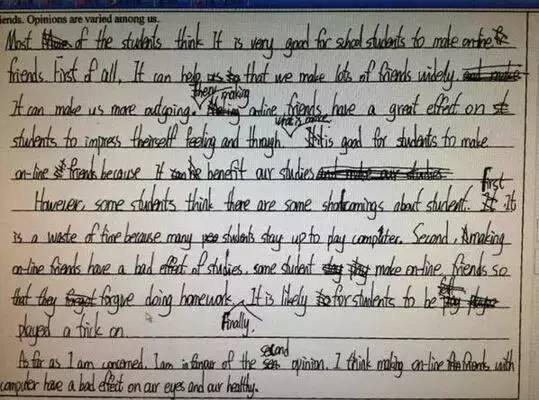 iends. Opinions are varied among us.
Most of the students think It is very good for school students to make on-line
friends. First of all, It can help us that we make lots of friends widely.
It can make us more outgoing. then, making on-line friends have a great effect on
students to impress theirself feeling and through. what is more It is good for students to make
on-line friends because It benefit our studies
However, some students think there are some shortcomings about student. First It
is a waste of time because many students stay up to play computer. Second, making
on-line friends have a bad effect of studies, some student make on-line friends so
that they forgive doing homework. Finally. It is likely for students to be
played a trick on.
As far as I am concerned, I am in favour of the second opinion. I think making on-line friends with
computer have a bad effect on our eyes and our healthy.